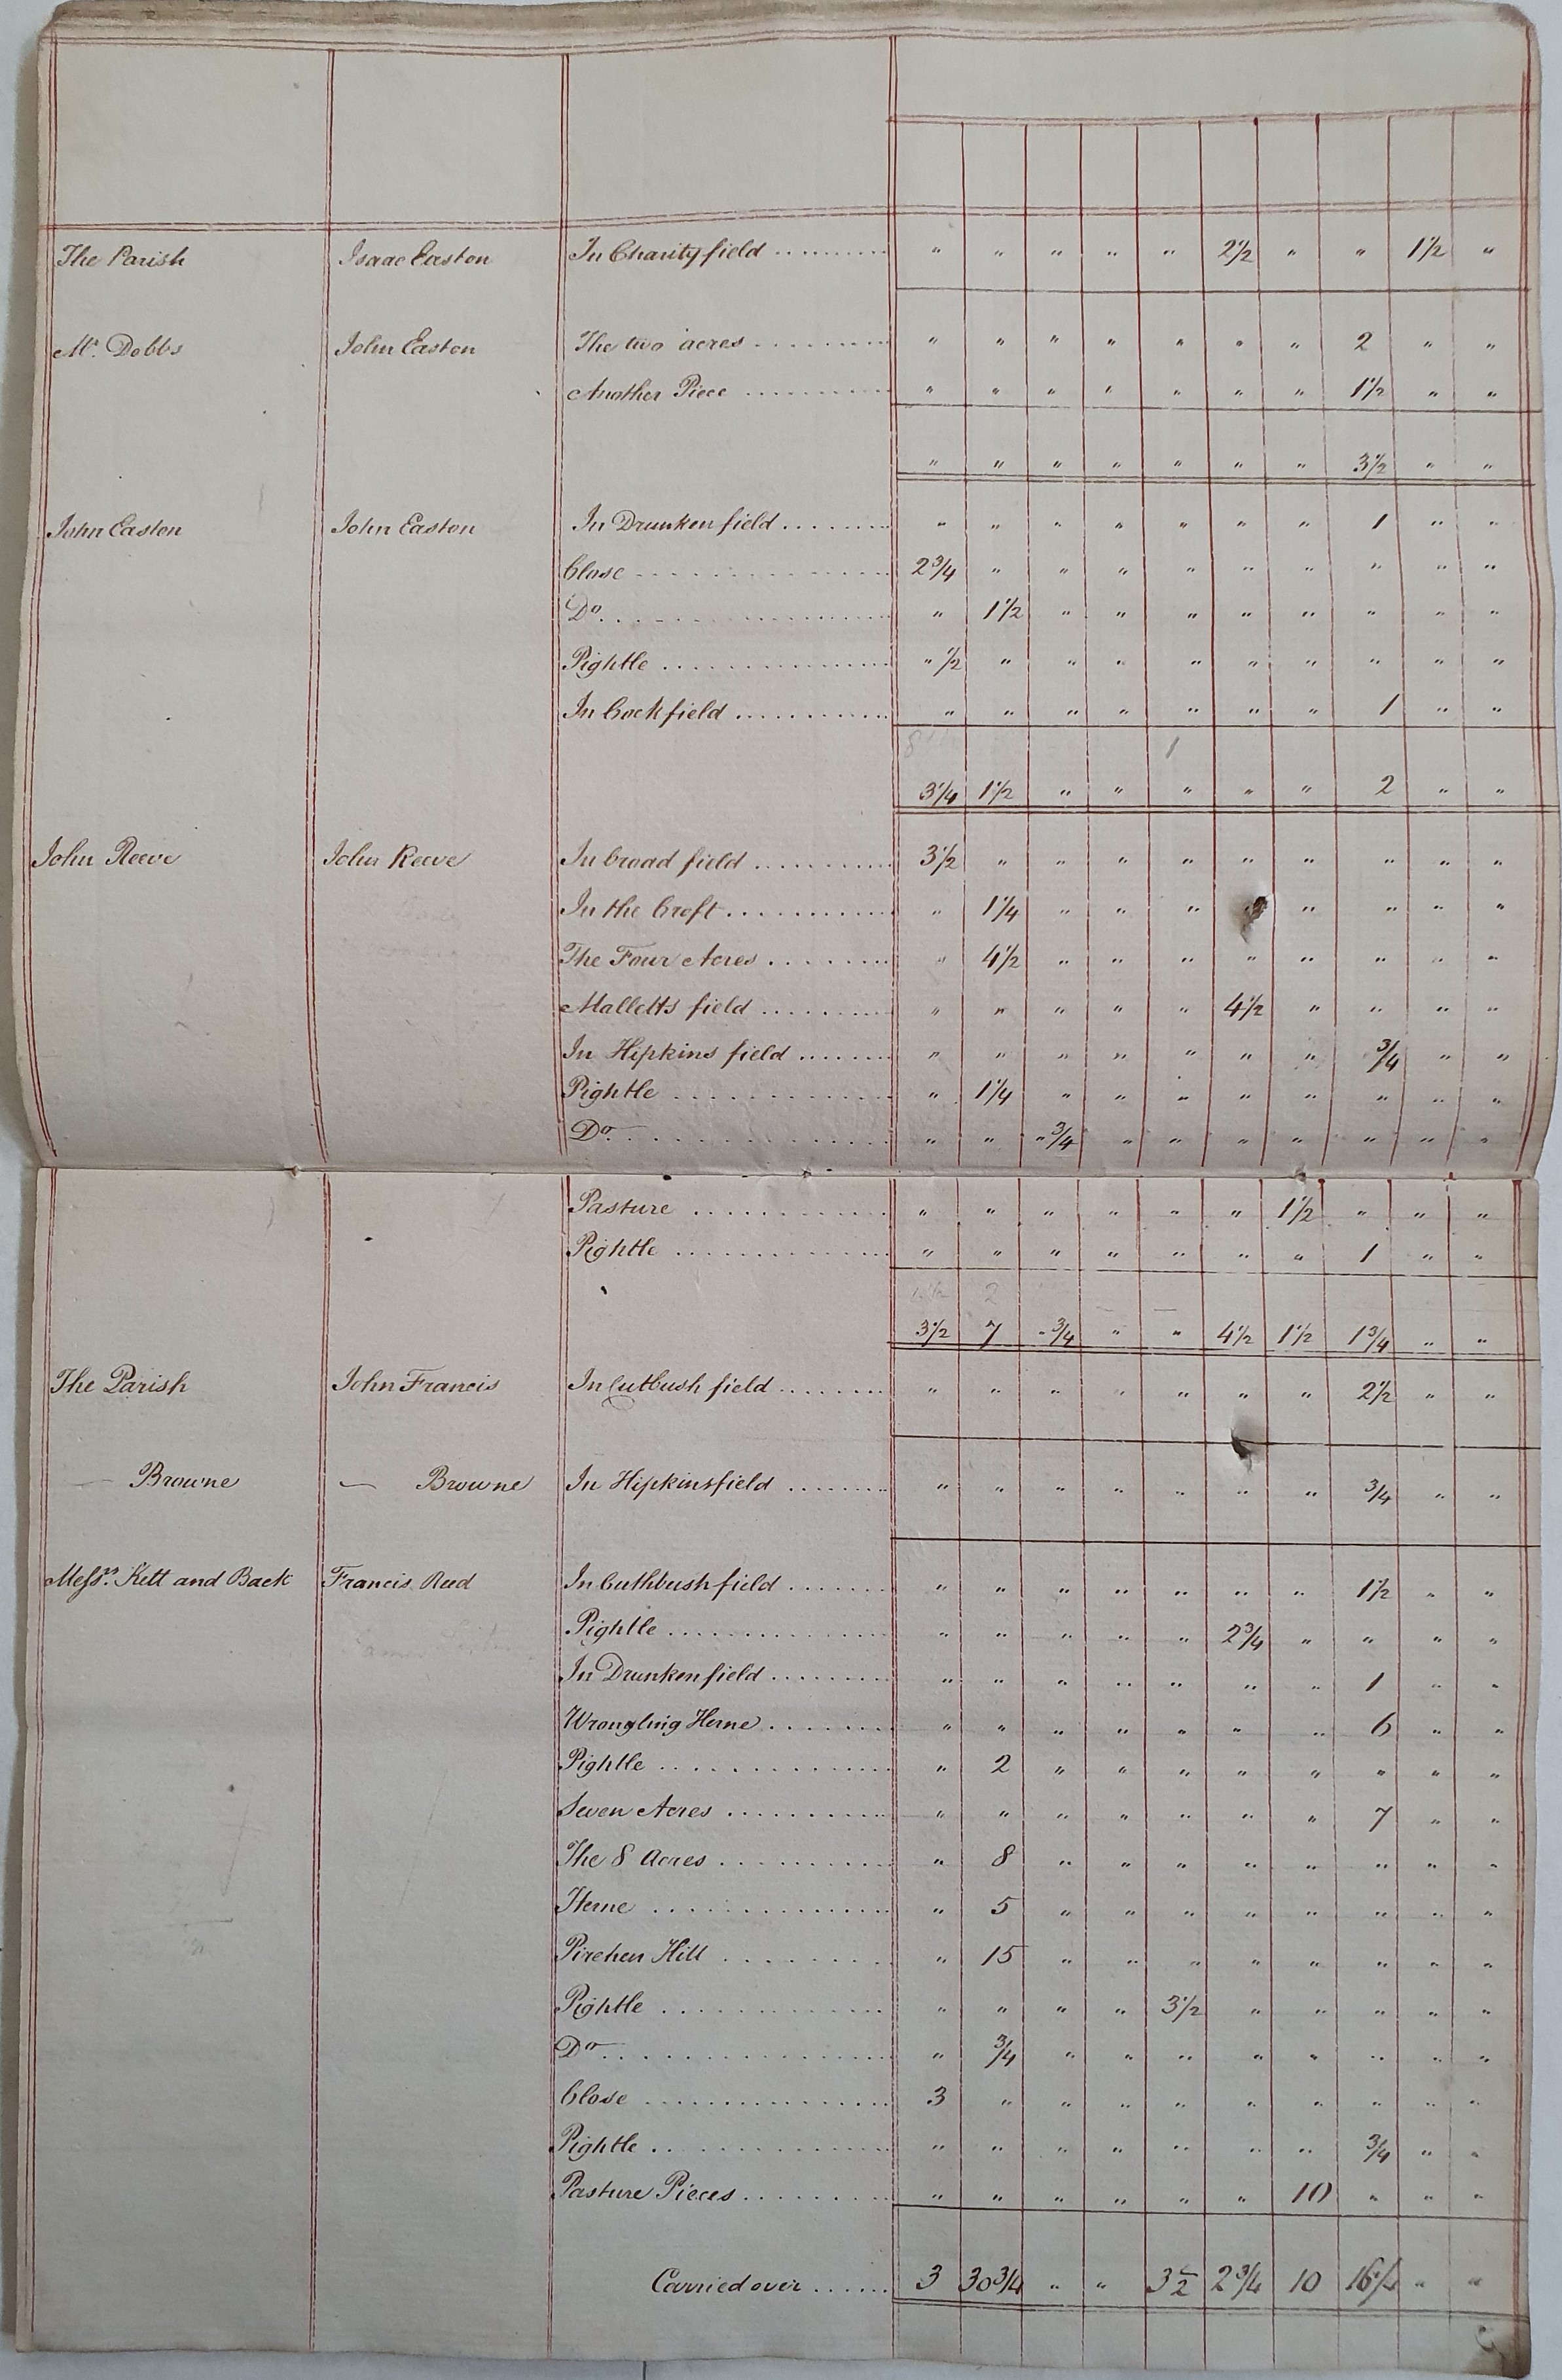 The Parish Isaac Easton In Charity field .......... " " " " " 2½ " " 1½ "
Mr. Dobbs John Easton The two acres .......... " " " " " " " 2 " "
Another Piece .......... " " " " " " " 1½ " "
" " " " " " " 3½ " "
John Easton John Easton In Drunken field .......... " " " " " " " 1 " "
Close .......... 2¾ " " " " " " " " "
Do. .......... " 1½ " " " " " " " "
Pightle .......... " ½ " " " " " " " " "
In Cockfield .......... " " " " " " " 1 " "
3¼ 1½ " " " " " 2 " "
John Reeve John Reeve In broad field .......... 3½ " " " " " " " " "
In the Croft .......... " 1¼ " " " " " " "
The Four Acres .......... " 4½ " " " " " " " "
Malletts field .......... " " " " " 4½ " " " "
In Hipkins field .......... " " " " " " " ¾ " "
Pightle .......... " 1¼ " " " " " " " "
Do. .......... " " " ¾ " " " " " " "
Pasture .......... " " " " " " 1½ " " "
Pightle .......... " " " " " " " 1 " "
3½ 7 " ¾ " " 4½ 1½ 1¾ " "
The Parish John Francis In Cutbush field .......... " " " " " " " 2½ " "
— Browne — Browne In Hipkinsfield .......... " " " " " " " ¾ " "
Messrs. Kett and Back Francis Reed In Cuthbush field .......... " " " " " " " 1½ " "
Pightle .......... " " " " " 2¾ " " " "
In Drunken field .......... " " " " " " " 1 " "
Wrongling Herne .......... " " " " " " " 6 " "
Pightle .......... " 2 " " " " " " " "
Seven Acres .......... " " " " " " " 7 " "
The 8 Acres .......... " 8 " " " " " " " "
Herne .......... " 5 " " " " " " " "
Pirehen Hill .......... " 15 " " " " " " " "
Pightle .......... " " " " 3½ " " " " "
Do. .......... " ¾ " " " " " " " "
Close .......... 3 " " " " " " " " "
Pightle .......... " " " " " " " ¾ " "
Pasture Pieces .......... " " " " " " 10 " " "
Carried over ...... 3 30¾ " " 3½ 2¾ 10 16¼ " "